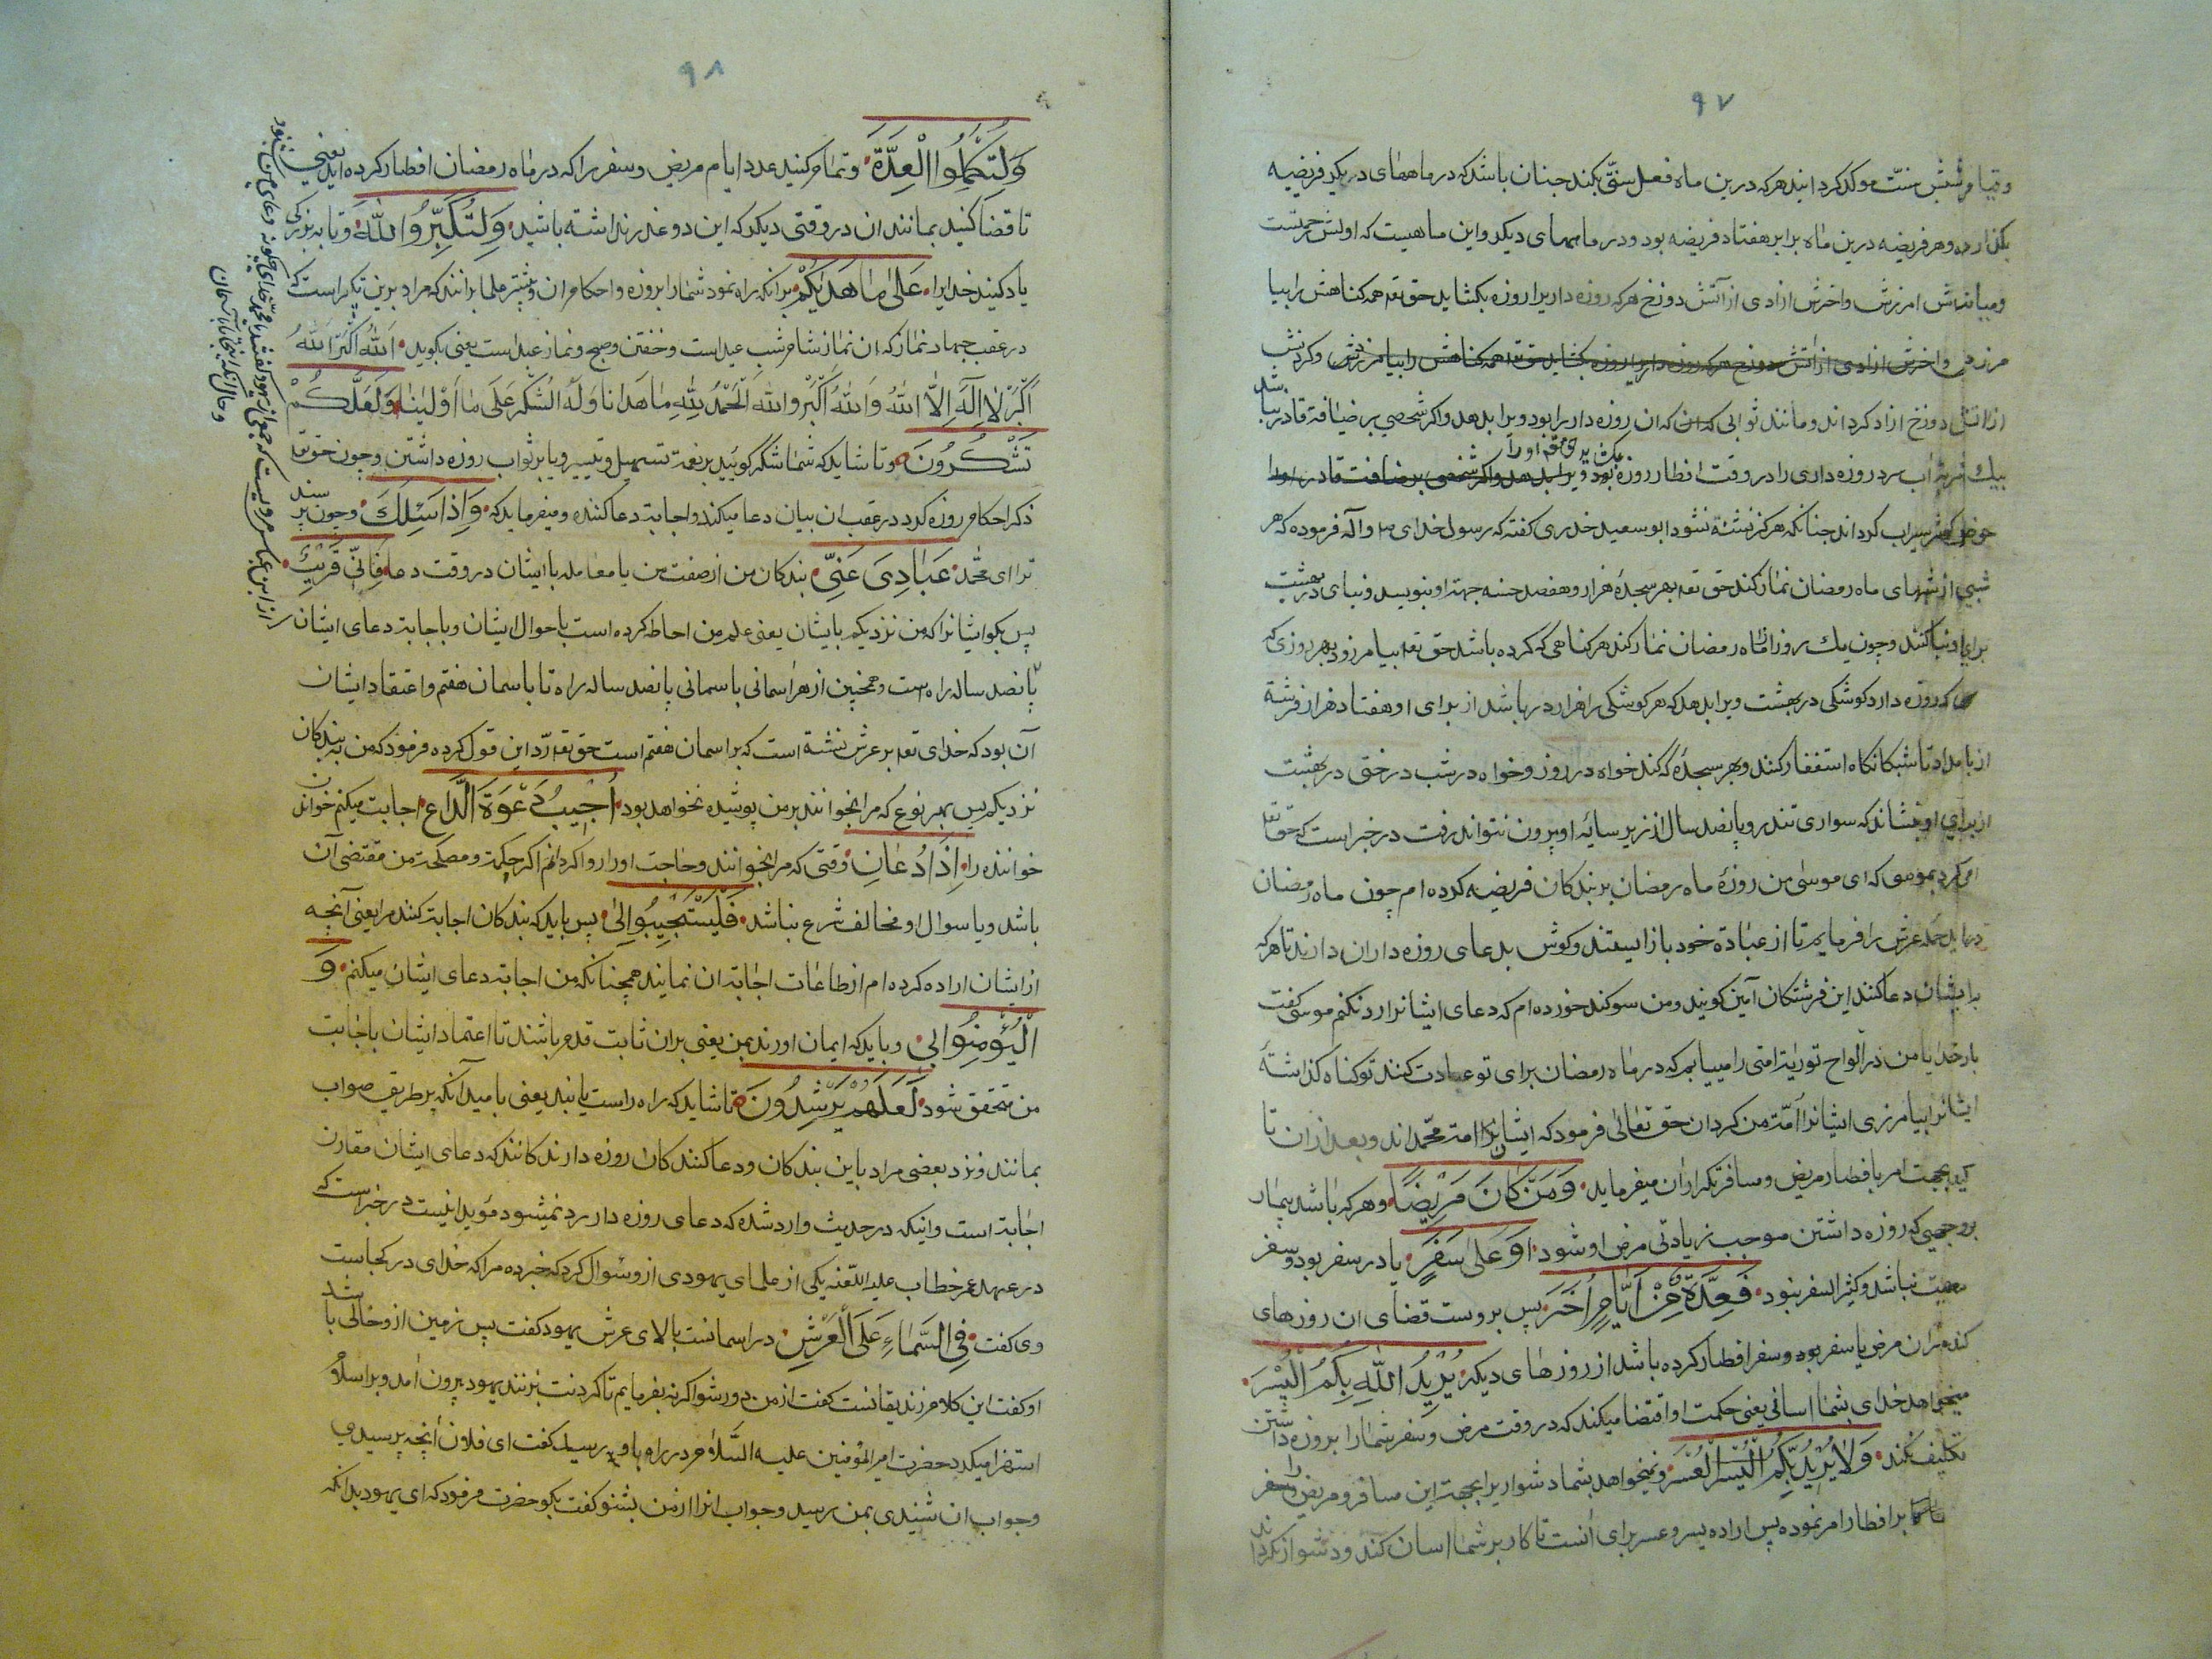 ۹۷
وقیام شبش سنت موکد کردانید هرکه درین ماه فعل سنتی بکند چنان باشد که در ماههای دیکر فریضه
بکذارده و هر فریضه درین ماه برابر هفتاد فریضه بود و در ماههای دیکر و این ماهیست که اولش رحمتست
ومیانه‌اش امرزش واخرش ازادی از آتش دوزخ هرکه روزه داریرا روزه بکشاید حق تعه همه کناهش را بیا
مرزد واخرش ازادی از آتش دوزخ هرکه روزه داریرا روزه بکشاید حق تعه همه کناهش را بیامرزد وکردنش
از آتش دوزخ ازاد کرداند ومانند ثوابی که ان روزه داررا بود ویرا بدهد واکر شخصی بر ضیافة قادر نباشد
بیك شربة آب سرد روزه داری را در وقت افطار روزه بکشاید حق تعه اورا
حوض کوثر سیراب کرداند چنانکه هرکز تشنه نشود ابو سعید خدری کفته که رسول خدای ص وآله فرموده که هر
شبی از شبهای ماه رمضان نماز کند حق تعه بهر سجدهٔ هزار وهفصد حسنه جهة او بنویسد وبنای در بهشت
برای او بنا کنند وچون یك روز از ماه رمضان نماز کند هر کناهی که کرده باشد حق تعه بیامرزد وبهر روزی که
که روزه دارد کوشکی در بهشت ویرا بدهد که هر کوشکی را هزار در باشد از برای او هفتاد هزار فرشتة
از بامداد تا شبانکاه استغفار کنند وبهر سجدهٔ که کند خواه در روز وخواه در شب درختی در بهشت
از برای او بنشاند که سواری تندرو پانصد سال از زیر سایهٔ او بیرون نتواند رفت در خبر است که حق تعه
امر کرد بموسی که ای موسی من روزهٔ ماه رمضان بر بندکان فریضه کرده ام چون ماه رمضان
درآید حملهٔ عرش را فرمایم تا از عبادة خود باز ایستند وکوش بدعای روزه داران دارند تا هرکه
با ایشان دعا کنند این فرشتکان آمین کویند ومن سوکند خورده ام که دعای ایشانرا رد نکنم موسی کفت
بار خدایا من در الواح توریة امتی را مییابم که در ماه رمضان برای تو عبادت کنند تو کناه کذاشتهٔ
ایشانرا بیامرزی ایشانرا امّة من کردان حق تعالی فرمود که ایشان امة محمّد اند وبعد ازان تا
کید بجهت امر بافطار مریض ومسافر تکرار ان میفرماید وَمَنْ کَانَ مَرِیضًا وهرکه باشد بیمار
بروجهی که روزه داشتن موجب زیادتی مرض او شود اَوْ عَلَی سَفَرٍ یا در سفر بود وسفر
معصیت نباشد وکثیر السفر نبود فَعِدَّةٌ مِنْ اَیَّامٍ اُخَرَ پس بروست قضای ان روزهای
که دران مرض یا سفر بود وسفر افطار کرده باشد از روزهای دیکر یُرِیدُ اللّٰهُ بِکُمُ الْیُسْرَ
میخواهد خدای بشما اسانی یعنی حکمت او اقتضا میکند که در وقت مرض وسفر شمارا بروزه داشتن
تکلیف نکند وَلَا یُرِیدُ بِکُمُ الْعُسْرَ ونمیخواهد بشما دشواریرا بجهة این مسافر ومریض را
بر افطار امر نموده پس اراده یسر وعسر برای آنست تا کار بر شما اسان کند ودشوار نکرداند
۹۸
وَلِتُکْمِلُوا الْعِدَّةَ وتمام کنید عدد ایام مریض وسفر را که در ماه رمضان افطار کرده اید یعنی
تا قضا کنید بمانند ان در وقتی دیکر که این دو عذر نداشته باشید وَلِتُکَبِّرُوا اللّٰهَ وتا به بزرکی
یاد کنید خدایرا عَلٰی مَا هَدٰیکُمْ برانکه راه نمود شمارا بروزه واحکام ان وبیشتر علما برانند که مراد برین تکبیر است که
در عقب چهار نماز که ان نماز شام شب عید است وخفتن وصبح ونماز عید است یعنی بکوید اَللّٰهُ اَکْبَرُ اَللّٰهُ
اَکْبَرُ لَا اِلٰهَ اِلَّا اللّٰهُ وَاللّٰهُ اَکْبَرُ وللّٰه الْحَمْدُ للّٰهِ مَا هَدَانَا وَلَهُ الشُّکْرُ عَلَی مَا اَوْلَیْنَا وَلَعَلَّکُمْ
تَشْکُرُونَ وتا شاید که شما شکر کوئید بر نعمة تسهیل وتیسیر ویا بر ثواب روزه داشتن وچون حق تعه
ذکر احکام روزه کرد در عقب ان بیان دعا میکند واجابة دعا کننده ومیفرماید که وَاِذَا سَئَلَكَ وچون پرسند
ترا ای محمّد عِبَادِی عَنِّی بندکان من از صفت من یا معامله با ایشان در وقت دعا فَاِنِّی قَرِیبٌ
پس بکو ایشانرا که من نزدیکم بایشان یعنی علم من احاطه کرده است باحوال ایشان وباجابة دعای ایشان
پانصد ساله راه است وهمچنین از هر اسمانی باسمانی پانصد ساله راه تا باسمان هفتم واعتقاد ایشان
آن بود که خدای تعه بر عرش نشسته است که بر اسمان هفتم است حق تعه ردّ این قول کرده فرمود که من به بندکان
نزدیکم پس بهر نوع که مرا بخوانند بر من پوشیده نخواهد بود اُجِیبُ دَعْوَةَ الدَّاعِ اجابت میکنم خواندن
خواننده را اِذَا دَعَانِ وقتی که مرا بخوانند وحاجت اورا روا کردانم اکر حکمة ومصلحت من مقتضی آن
باشد ویا سوال او مخالف شرع نباشد فَلْیَسْتَجِیبُوا لِی پس باید که بندکان اجابة کنند مرا یعنی آنچه
از ایشان اراده کرده ام از طاعات اجابة ان نمایند همچنانکه من اجابة دعای ایشان میکنم وَ
الْیُؤْمِنُوا بِی وباید که ایمان اورند بمن یعنی بران ثابت قدم باشند تا اعتماد ایشان باجابت
من متحقق شود لَعَلَّهُمْ یَرْشُدُونَ تا شاید که راه راست یابند یعنی بامید آنکه بر طریق صواب
بمانند ونزد بعضی مراد باین بندکان ودعا کنندکان روزه دارند که دعای ایشان مقارن
اجابة است وانیکه در حدیث وارد شده که دعای روزه دار رد نمیشود مؤید اینست در خبر است که
در عهد عمر خطاب علیه اللعنه یکی از علمای یهودی ازو سوال کرد که خبر ده مرا که خدای در کجاست
وی کفت فِی السَّمَاءِ عَلَی الْعَرْشِ در اسمانست بالای عرش یهود کفت پس زمین ازو خالی باشد
او کفت این کلام زندیقانست کفت از من دور شو اکرنه بفرمایم تا کردنت بزنند یهود بیرون امد وبر اسلام
استهزا میکرد حضرت امیر المؤمنین علیه السّلام در راه باو رسید کفت ای فلان آنچه پرسیدی
وجواب ان شنیدی بمن رسید وجواب انرا از من بشنو کفت بکو حضرت فرمود که ای یهود بدانکه
از ابن عباس مرویست که جمعی از یهود کفتند یا محمّد خدای چکونه دعای من شنود
وحال انکه از اینجا تا بآسمان